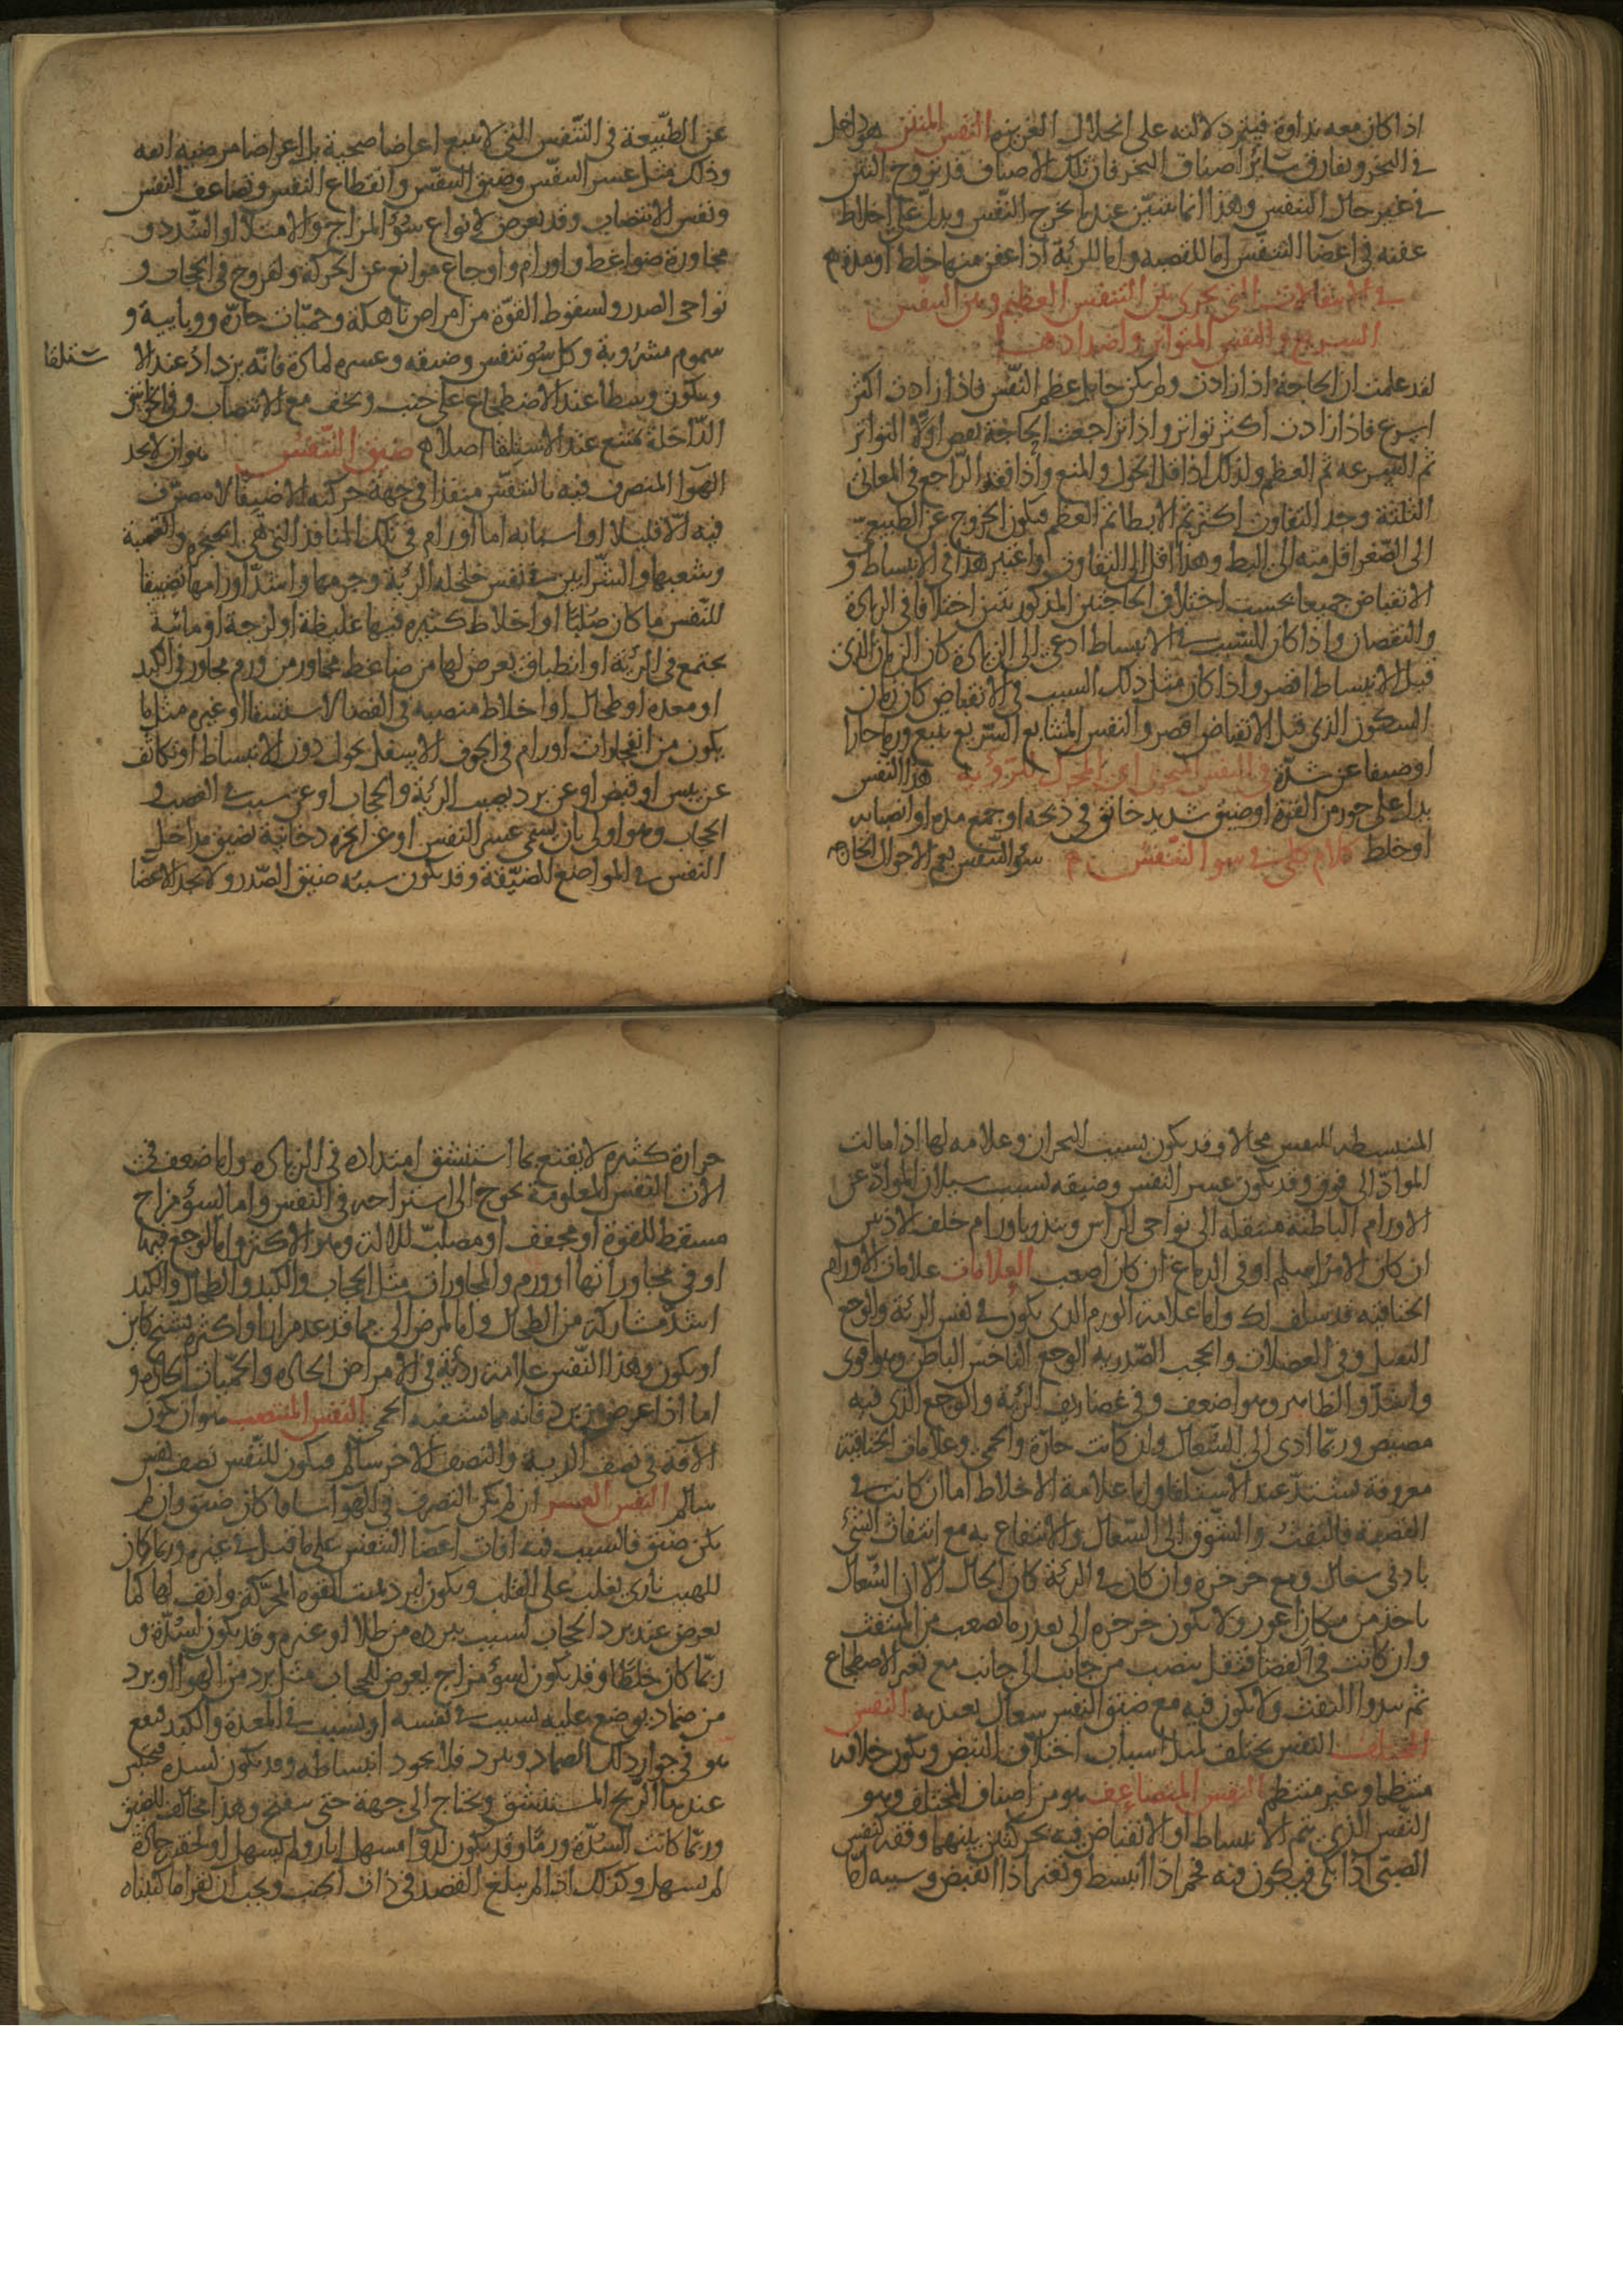 اذا كان معه نداوة فيتم دلالته على انحلال الغريزه النفس المنتن هو داخل
في البخر ويفارق سائر اصناف البخر فان تلك الاصناف قد تروح النتن
في غير حال التنفس وهذا انما يتبين عندما يخرج النفس ويدل على اخلاط
عفنه في اعضا التنفس اما القصبه واما الرئة اذا عفن منها خلط او مدة م
في الانتقالات التي تجري بين التنفس العظيم وبين النفس
السريع والنفس المتواتر واضدادها
لقد علمت ان الحاجة اذا زادت ولم يكن حايل عظم النفس فاذا زادت اكثر
اسرع فاذا زادت اكثر تواتر واذا تراجعت الحاجة نقص اولا التواتر
ثم السرعه ثم العظم ولذلك اذا قل الحول والمنع واذا فقد الراجع في المعانى
الثلثة وجد التفاوت اكثر ثم الابطا ثم العظم فيكون الخروج عن الطبيعي
الى الصغر اقل منه الى البط وهذا اقل الى التفاوت واعتبر هذا في الانبساط و
الانقباض جميعا بحسب اختلاف الحاجتين المذكورتين اختلافا في الزيادة
والنقصان واذا كان السبب في الانبساط ادعى الى الزيادة كان الزمان الذى
قبل الانبساط اقصر واذا كان مثل ذلك السبب في الانقباض كان زمان
السكون الذى قبل الانقباض اقصر والنفس المتتابع السريع يتبع ورما حارا
او ضيقا عن شدة في النفس البحرى اى المحرك للرؤية هذا النفس
يدل على خور من القوة او ضيق شديد خانق في ذبحه او جمع مدة او انصبابه
او خلط كلام كلى في سو التنفس م سؤ التنفس يعم الاحوال الخارجه
عن الطبيعة في التنفس التى لا تتبع اعراضا صحية بل اعراضا مرضية انعه
وذلك مثل عسر التنفس وضيق التنفس وانقطاع النفس وتضاعف النفس
ونفس الانتصاب وقد يعرض لانواع سؤ المزاج والامتلا او السدد و
مجاورة ضواغط واورام واوجاع موانع عن الحركة ولقروح في الحجاب و
نواحى الصدر ولسقوط القوة من امراض ناهكة وحميات حارة ووبايية و
سموم مشروبة وكل سؤ تنفس وضيقه وعسره لمادة فانه يزداد عند الا
ستلقا
ويكون وسطا عند الاضطجاع على جنب ويخف مع الانتصاب وفي الخوانيق
الداخلة يمتنع عند الاستلقا اصلا م ضيق النفس هو ان لا يجد
الهوا المتصرف فيه بالتنفس منفذا في جهة حركته الا ضيقا لا متصرف
فيه الا قليلا او اسبابه اما اورام في تلك المنافذ التى هى الحنجره والقصبة
وشعبها والشرايين في نفس خلخله الرئة وجرمها واشد اورامها تضييقا
للنفس ما كان صلبا او اخلاط كثيره فيها غليظة او لزجة او مائية
يجتمع في الرئة او انطباق يعرض لها من ضاغط مجاور من ورم مجاور في الكبد
او معده او طحال او اخلاط منصبه في الفضا لاستسقا او غيره مثل ما
يكون من انفجارات اورام في الجوف الاسفل يحول دون الانبساط او تكاثف
عن يبس او قبض او عن برد يصيب الرئة والحجاب او عن سبب في العصب و
الحجاب وهو اولى بان يسمى عسر النفس او عن ابخره دخانية تضيق مداخل
النفس في المواضع الضيقة وقد يكون سببه ضيق الصدر ولا يجد الاعضا
المنبسطه للنفس مجالا وقد يكون بسبب البحران وعلامه لها اذا مالت
المواد الى فوق وقد يكون عسر النفس وضيقه بسبب سيلان المواد عن
الاورام الباطنه منتقله الى نواحى الراس وينذر باورام خلف الاذنين
ان كان الامر اسلم او في الدماغ ان كان اصعب العلامات علامات الاورام
الخناقيه قد سلف لك واما علامة الورم الذى يكون في نفس الرئة والوجع
الثقيل وفي العضلات والحجب الصدريه الوجع الناخس الباطن وهو اقوى
واشد والظاهر وهو اضعف وفي غضاريف الرئة والوجع الذى فيه
مصيص وربما ادى الى السعال وان كانت حارة والحمى وعلامات الخناقية
معروفة يشتد عند الاستلقا واما علامة الاخلاط اما ان كانت في
القصبة فالنفث والشوق الى السعال والانتفاع به مع انتفاث الشئ
بادنى سعال ومع خرخرة وان كان في الرئة كان الحال الا ان السعال
ياخذ من مكان اغور ولا يكون خرخره الى بعد رما يصعب من المنتفث
وان كانت في الفضا فثقل ينصب من جانب الى جانب مع تغير الاضطجاع
ثم يبدو النفث ولا يكون فيه مع ضيق النفس سعال يعتد به النفس
المختلف النفس يختلف لمثل اسباب اختلاف النبض ويكون خلافه
منتظما وغير منتظم النفس المتضاعف هو من اصناف المختلف وهو
النفس الذى يتم الانبساط او الانقباض فيه بحركتين بينهما وقفه كنفس
الصبى اذا بكى فيكون فيه فحم اذا انبسط وتغير اذا انقبض وسببه اما
حرارة كثيره لا يقنع بما استنشق امتداده في الزيادة واما ضعف في
الات النفس المعلومة يحوج الى استراحه في النفس واما لسؤ مزاج
مسقط للقوة او مجفف او مصلب للاله وهو الاكثر واما لوجع فيها
او في مجاوراتها او ورم والمجاورات مثل الحجاب والكبد والطحال والكبد
اشد مشاركة من الطحال واما لمرض الى مما قد عد مرارا او اكثره تشنج كاين
او يكون وهذا النفس علامة ردية في الامراض الحاده والحميات الحاده و
اما اذا عرض من برد فانه مما يشفيه الحمى النفس المنتصب هو ان يكون
الافة في نصف الرية والنصف الاخر سالم فيكون للنفس نصف نفس
سالم النفس العسر ان لم يكن التصرف في الهوا سا ما كان ضيق وان لم
يكن ضيق فالسبب فيه افات اعضا التنفس على ما قيل في غيره وربما كان
للهيب نارى يغلب على القلب ويكون لبرد يميت القوه المحركة وانف لها كما
يعرض عند برد الحجاب لسبب يبرده من طلا او غيره وقد يكون لسدة و
ربما كان خلطا وقد يكون لسؤ مزاج يعرض للحجاب مثل برد من الهوا او برد
من ضماد يوضع عليه لسبب في نفسه او لسبب في المعدة والكبد فيقع
هو في جوار ذلك الضماد ويبرد فلا يجود انبساطه وقد يكون لسده فيحتبس
عندها الريح المستنشق ويحتاج الى جهة حتى يسفح وهذا مخالف للضيق
وربما كانت السدة ورما وقد يكون لدوا مسهل اثار ولم يسهل او لحقن حادة
لم يسهل وكذلك اذا لم يبلغ الفصد في ذات الجنب ويجب ان تقرا ما كتبناه